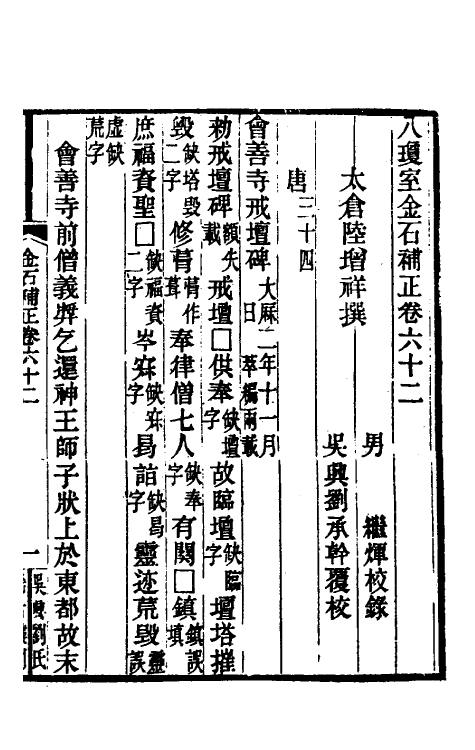 八瓊室金石補正卷六十二
太倉陸增祥撰
男　繼煇校錄
吳興劉承幹覆校
唐三十四
會善寺戒壇碑大厤二年十一月
日　萃編兩載
勑戒壇碑額失
載戒壇□供奉缺壇
字故臨壇缺臨
字壇塔摧
毀缺塔毀
二字修葺葺作
葺奉律僧七人缺奉
字有闕□鎮鎮誤
填
庶福資聖□缺福資
二字岑㟝缺㟝
字曷詣缺曷
字靈迹荒毀靈誤
虛缺
荒字
會善寺前僧義獎乞還神王師子狀上於東都故末
金石補正卷六十二
一
吳興劉氏